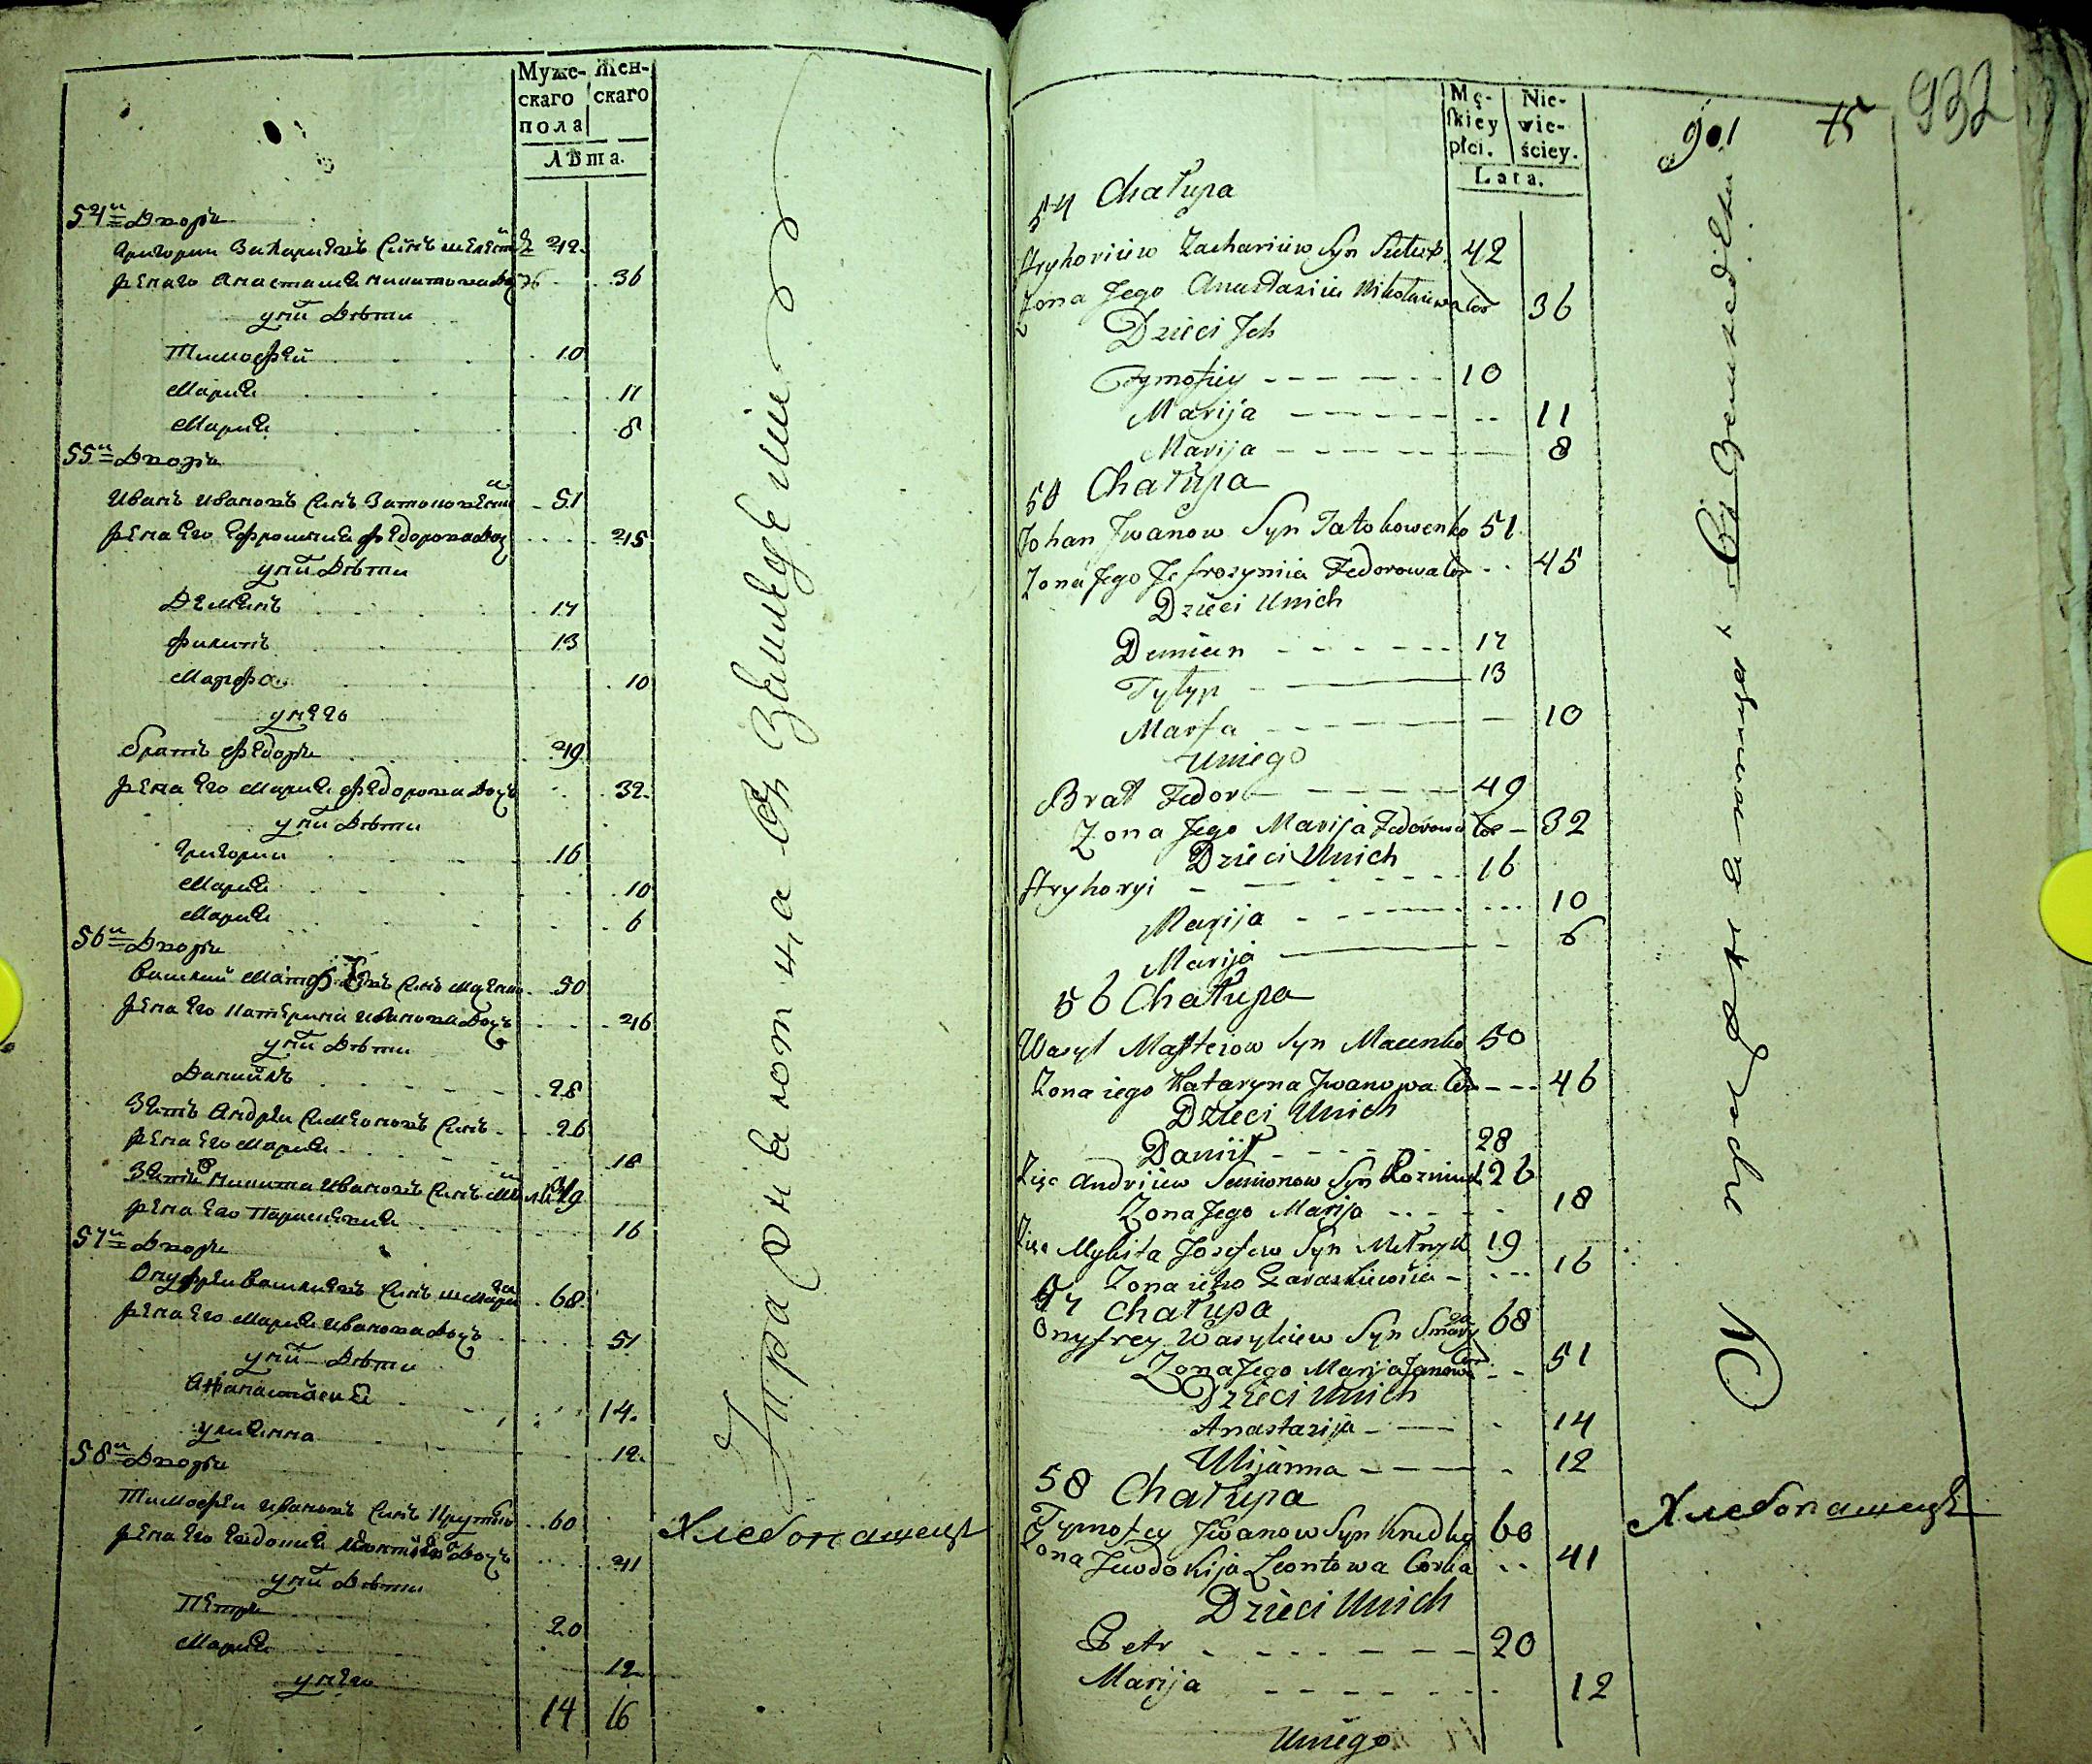 Муже- | Жен-
скаго | скаго
пола
Лѣта.
54й Дворъ
Григорий Захариевъ Синъ 42
жена его Анастасия Никитова дочь 36
у них дѣти
Тимофей 10
Мария 11
Мария 8
55й Дворъ
Иванъ Ивановъ Синъ 51
жена его Ефросиния Федорова дочь 45
у них дѣти
Демянъ 17
Филипъ 13
Марфа 10
у него
братъ Федоръ 49
жена его Мария Федорова дочь 32
у них дѣти
Григорий 16
Мария 10
Мария 6
56й Дворъ
Василий Матфѣевъ Синъ Маценко 50
жена его Катерина Иванова дочь 46
у них дѣти
Данийлъ 28
Зять Андрей Симеоновъ Синъ 26
жена его Мария 18
Зять Никита Ивановъ Синъ 19
жена его Параскевия 16
57й Дворъ
Онуфрей Василиевъ Синъ 68
жена его Мария Иванова дочь 51
у них дѣти
Анастасия 14
Улиянна 12
58й Дворъ
Тимофей Ивановъ Синъ 60
жена его Евдокия Леонтиева дочь 41
у них дѣти
Петръ 20
Мария 12
у него
14 16
Упражняютца въ Земледелии
Хлебопашецъ
Mę- | Nie-
skiey | wie-
płci. | ściey.
Lata.
901 75 932
54 Chałupa
Hryhoriiew Zachariiew Syn 42
Zona Jego Anastaziia Cor 36
Dzieci Jch
Tymofiey 10
Marija 11
Marija 8
Chałupa
Johan Jwanow Syn 51
Zona Jego Jefrozynia Fedorowa Cor 45
Dzieci Unich
Demien 17
Fylyp 13
Marfa 10
Uniego
Brat Fedor 49
Zona Jego Marija Fedorowa Cor 32
Dzieci Unich
Hryhoryi 16
Marija 10
Marija 6
56 Chałupa
Wasyl Matteiow Syn Macenko 50
Zona iego Kataryna Jwanowa Cor 46
Dzieci Unich
Daniił 28
Zięc Andriiew Semionow Syn 26
Zona Jego Marija 18
Zięc Mykita Jozefow Syn Melnyk 19
Zona iego Paraskiewiia 16
57 Chałupa
Onyfrey Wasyliew Syn 68
Zona Jego Marija Janowa Cor 51
Dzieci Unich
Anastazija 14
Ulijanna 12
58 Chałupa
Tymofey Jwanow Syn 60
Zona Jewdokija Leontowa Corka 41
Dzieci Unich
Petr 20
Marija 12
Uniego
Упражняютца въ Земледелии
Хлебопашецъ